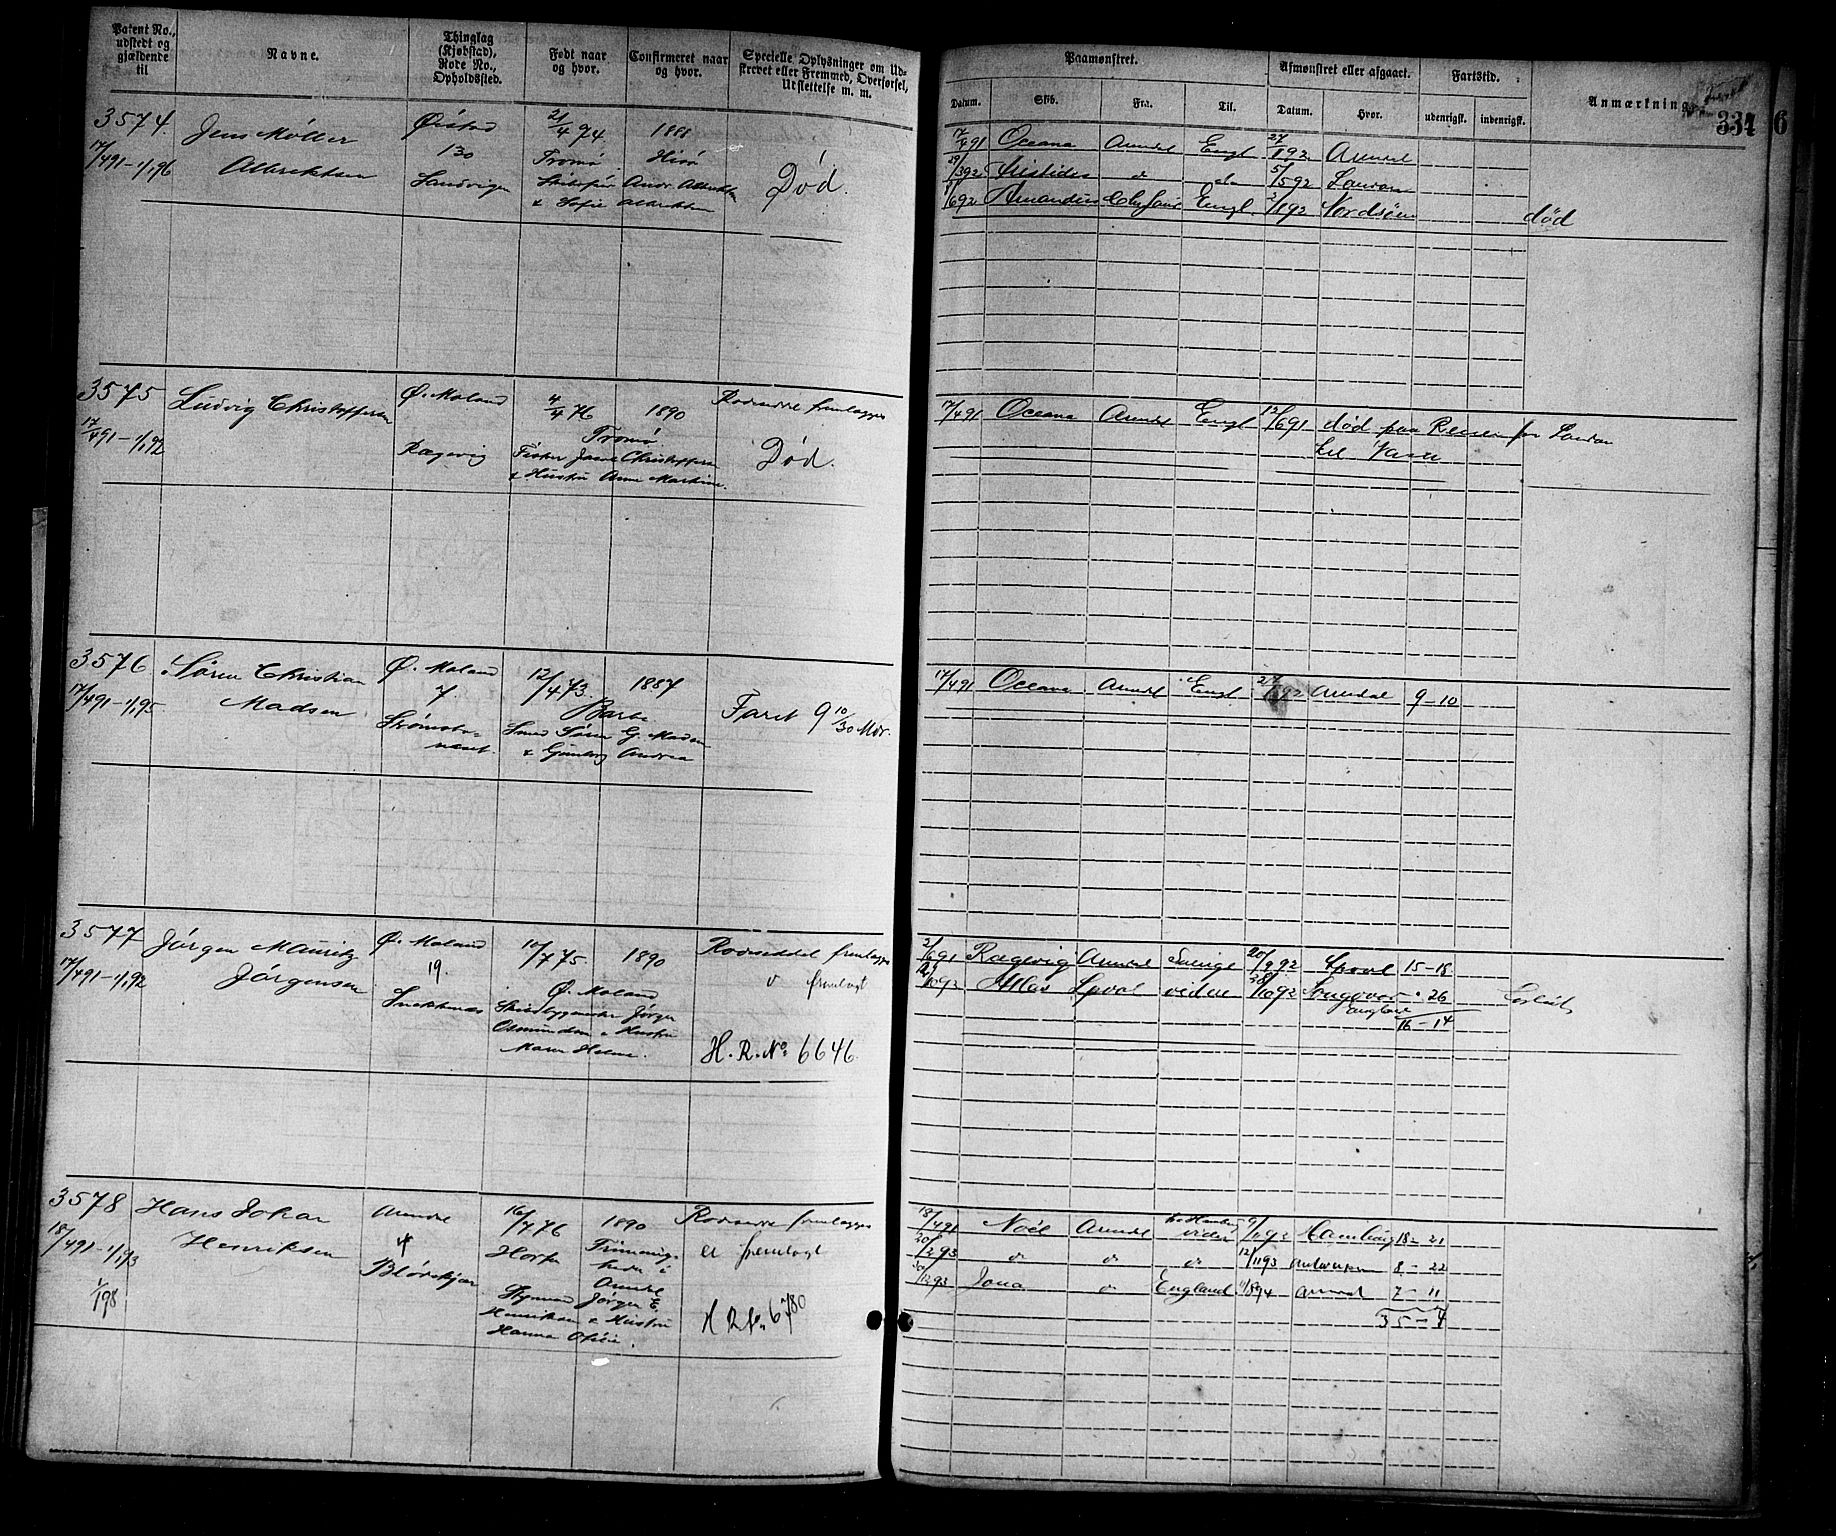 Patent No., udstedt og gjældende til
Navne.
Thinglag (Kjøbstad), Rode No., Opholdssted.
Født naar og hvor.
Confirmeret naar og hvor.
Specielle Oplysninger om Udskrevet eller Fremmed, Overførsel, Udslettelse m. m.
Paamønstret.
Afmønstret eller afgaaet.
Fartstid.
Anmærkning
Datum.
Skib.
Fra.
Til.
Datum.
Hvor.
udenrigsk.
indenrigsk.
334
6
3574
17/4 91 - 1/1 96
Jens Møller
Albrektsen
Øiestad
130
Sandvigen
21/4 74
Tromø
1888
Hisø
& Sofie Albrektsen
Død.
17/4 91 Oceana Arendal Engl 27/1 92 Arendal
29/3 92 Aristides do do 5/5 92
6 92 Amandus Engl. 2/11 92 Nordsøen
død
3575
17/4 91 - 1/1 92
Ludvig Christoffersen
Ø. Moland
Rægevig
4/4 76
1890
Tromø
Fisker Christoffersen
& Hustru Anne Martine.
Rodseddel fremlægges
Død.
17/4 91 Oceana Arendal Engl 12/6 91 død paa Reisen fra
til
3576
17/4 91 - 1/1 95
Søren Christian
Madsen
Ø. Moland
7
Strømsbo-
næset.
12/4 73.
1887
Barbu
Smed Søren G. Madsen
& Gunborg Andrea
Faret 9 10/30 Mdr.
17/4 91 Oceana Arendal Engl 27/1 92 Arendal 9 - 10
3577
17/4 91 - 1/1 92
Jørgen Mauritz
Jørgensen
Ø. Moland
19.
Snekknæs
10/7 75.
1890
Ø. Moland
Skibsbygmester Jørgen
Osmundsen & Hustru
Maren Helene.
Rodseddel fremlægges
fremlagt
H. R. No 6646.
2/6 91 Rægevig Arendal Sverige 20/9 92 Lpool 15 - 18
10 92 Atlas Lpool videre 28/10 92 " 26
England
16 - 14
Forlist
3578
18/4 91 - 1/1 93
1/1 98
Hans Johan
Henriksen
Arendal
4
Blødekjær
16/7 76
1890
Trinning-
heden i
Arendal
Styrmand Jørgen E.
Henriksen & Hustru
Hanna Ofelie.
Rodseddel fremlægges
er fremlagt
H R No 6780
18/4 91 Noël Arendal videre 9/1 92 Hamburg 18 - 21
20/2 93 do do do 12/11 93 Antwerpen 8 - 22
30/12 93 Jona do England 11/8 94 Arendal 7 - 11
35 - 4